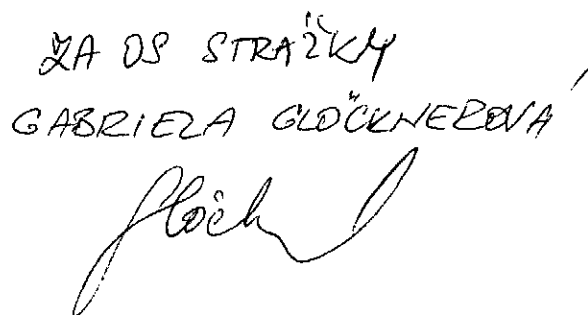 ZA OS STRÁŽKY
GABRIELA GLÖCKNEROVÁ
Glöck